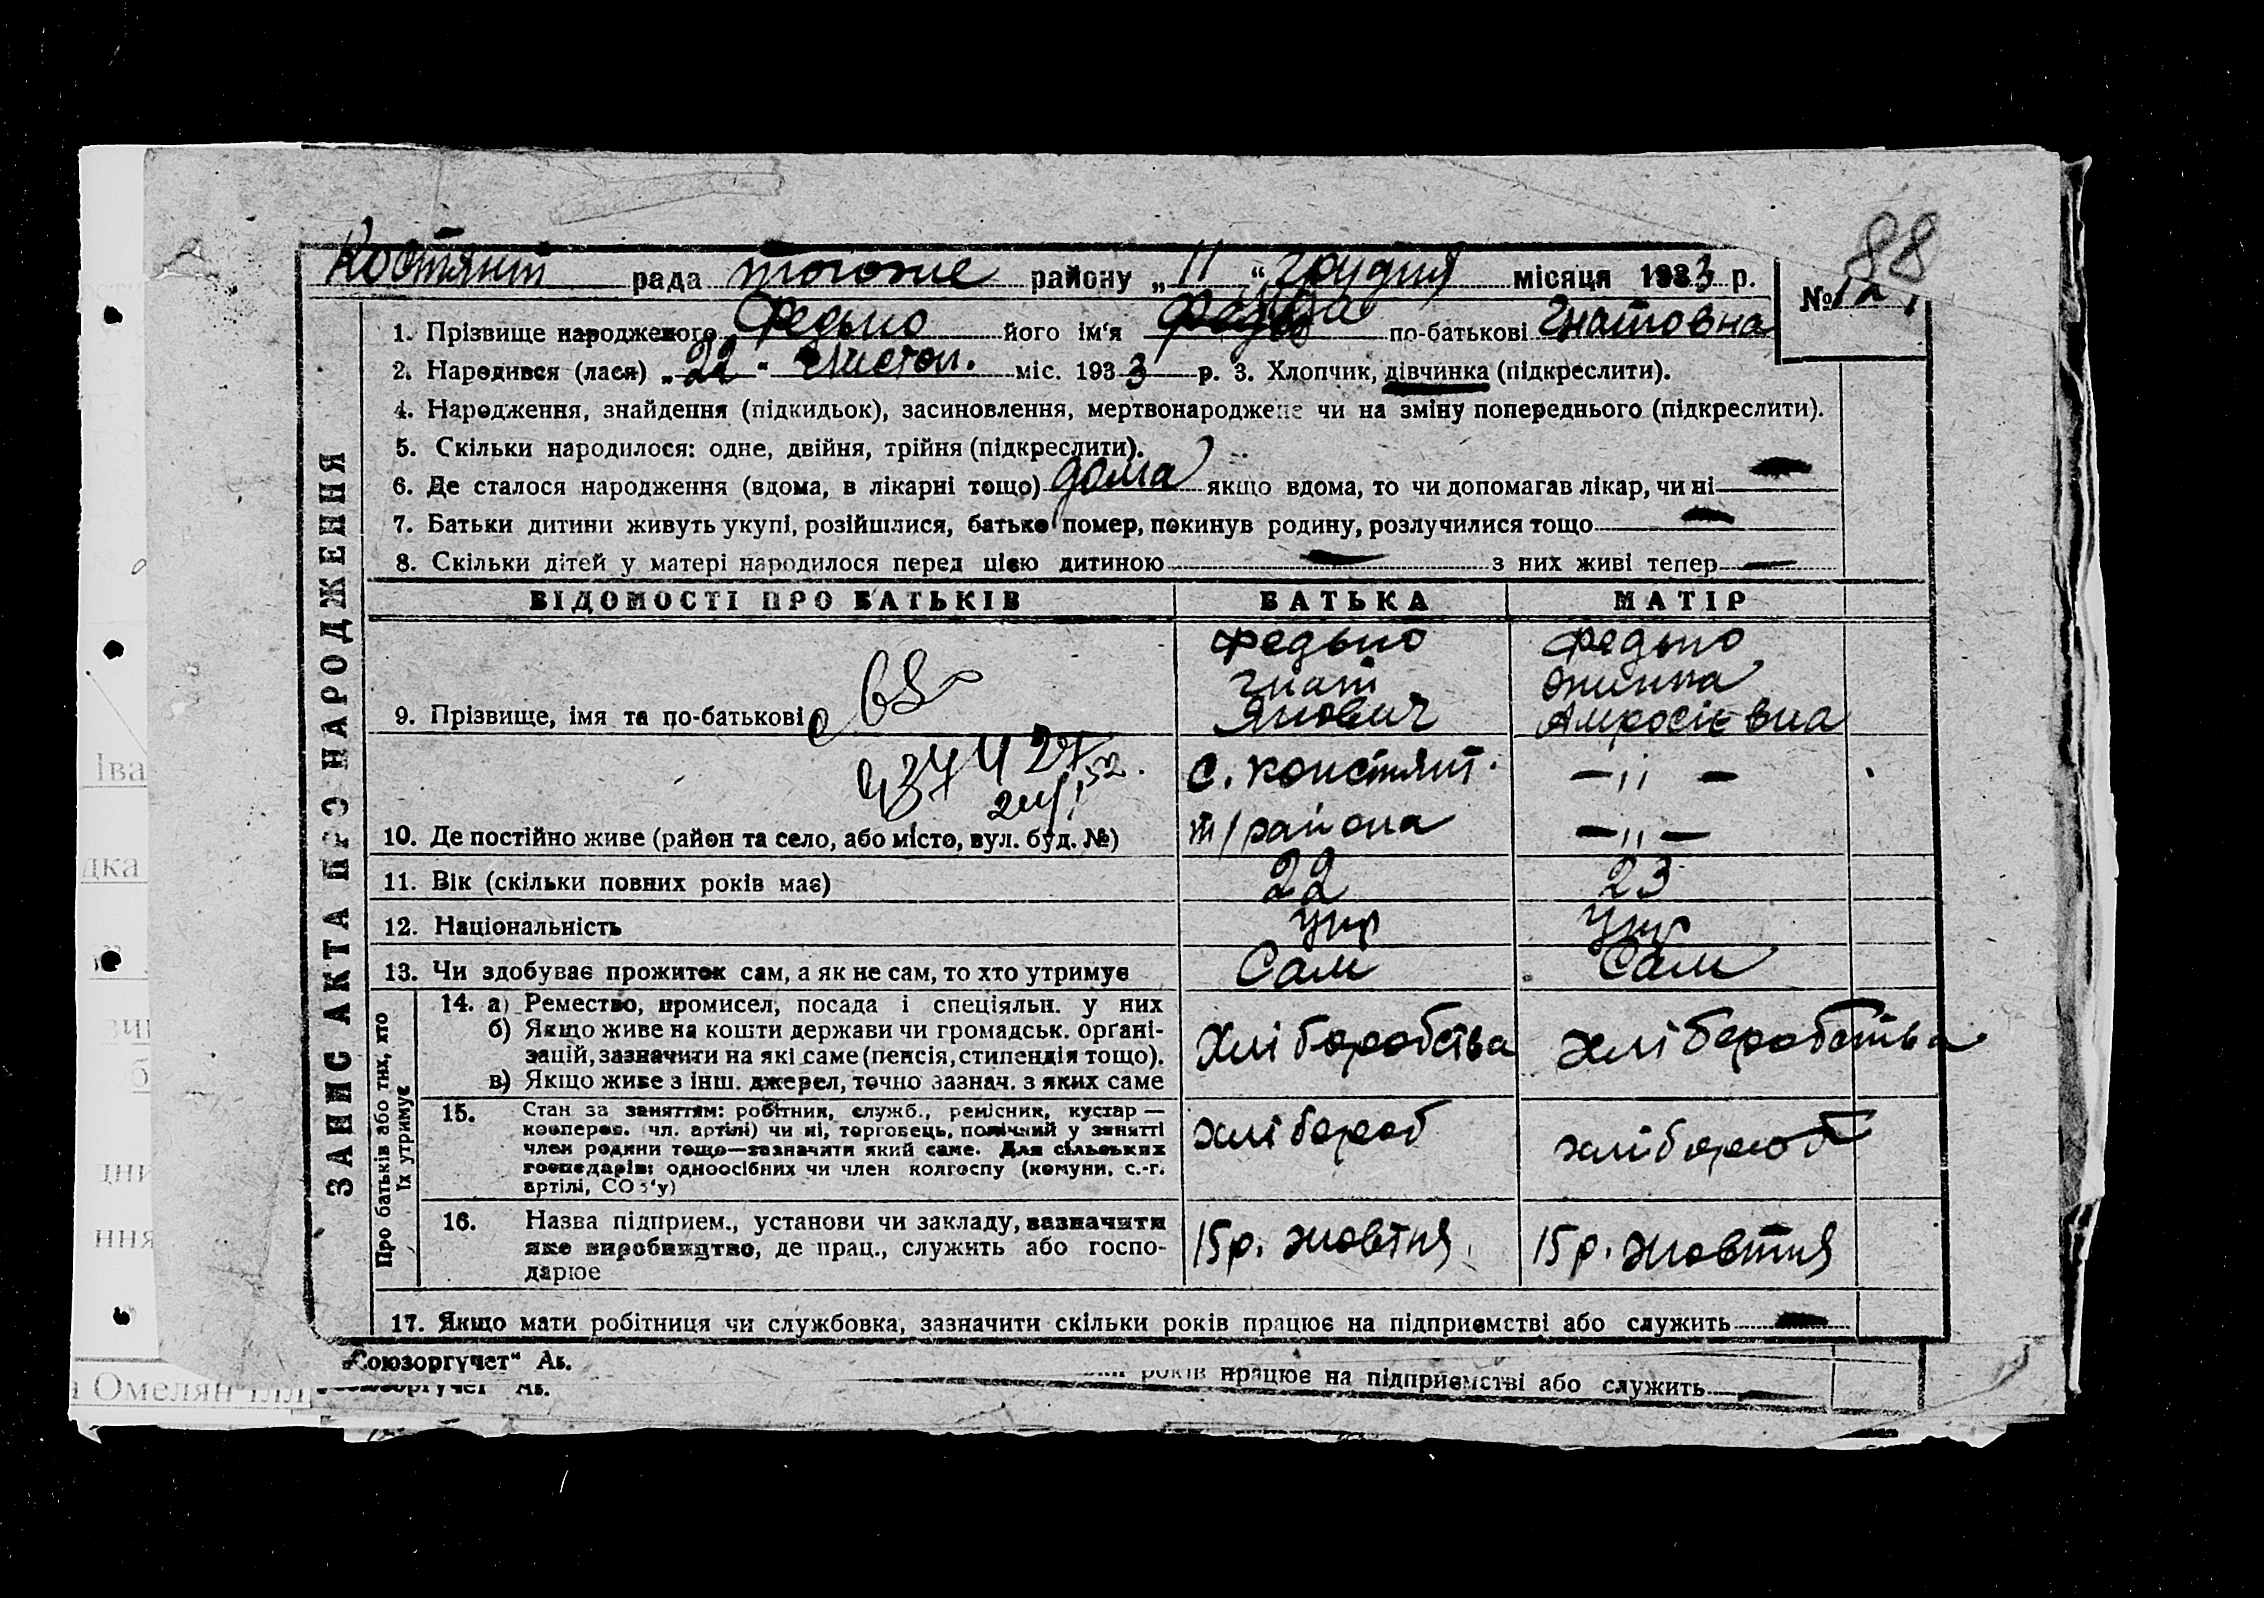 88
Костянт рада тогоже району „ 11 “ грудня місяця 1933 р. №
1. Прізвище народженого Федько його ім‘я по-батькові Гнатовна
2. Народився (лася) „ 22 “ листоп. міс. 1933 р. 3. Хлопчик, дівчинка (підкреслити).
4. Народження, знайдення (підкидьок), засиновлення, мертвонароджене чи на зміну попереднього (підкреслити).
5. Скільки народилося: одне, двійня, трійня (підкреслити).
6. Де сталося народження (вдома, в лікарні тощо) дома якщо вдома, то чи допомагав лікар, чи ні
7. Батьки дитини живуть укупі, розійшлися, батько помер, покинув родину, розлучилися тощо
8. Скільки дітей у матері народилося перед цією дитиною з них живі тепер
ЗАПИС АКТА ПРО НАРОДЖЕННЯ
ВІДОМОСТІ ПРО БАТЬКІВ БАТЬКА МАТІР
Федько Федько
Гнат
9. Прізвище, імя та по-батькові Янович Амросієвна
с. констянт. — „ —
10. Де постійно живе (район та село, або місто, вул. буд. №) т/района — „ —
11. Вік (скільки повних років має) 22 23
12. Національність Укр Укр
13. Чи здобуває прожиток сам, а як не сам, то хто утримує Сам Сам
Про батьків або тих, хто їх утримує
14. а) Ремество, промисел, посада і спеціяльн. у них
б) Якщо живе на кошти держави чи громадськ. орґані-
зацій, зазначити на які саме (пенсія, стипендія тощо).
в) Якщо живе з інш. джерел, точно зазнач. з яких саме
хліборобства хліборобства
15. Стан за заняттям: робітник, служб., ремісник, кустар —
коопером. (чл. артілі) чи ні, торговець, помічний у занятті
член родини тощо—зазначити який саме. Для сільських
господарів: одноосібних чи член колгоспу (комуни, с.-г.
артілі, СОЗ‘у)
хлібороб хлібороб
16. Назва підприєм., установи чи закладу, зазначити
яке виробництво, де прац., служить або госпо-
дарює
15 р. жовтня 15 р. жовтня
17. Якщо мати робітниця чи службовка, зазначити скільки років працює на підприємстві або служить
„Союзоргучет“ Ав.
років працює на підприємстві або служить
Омелян